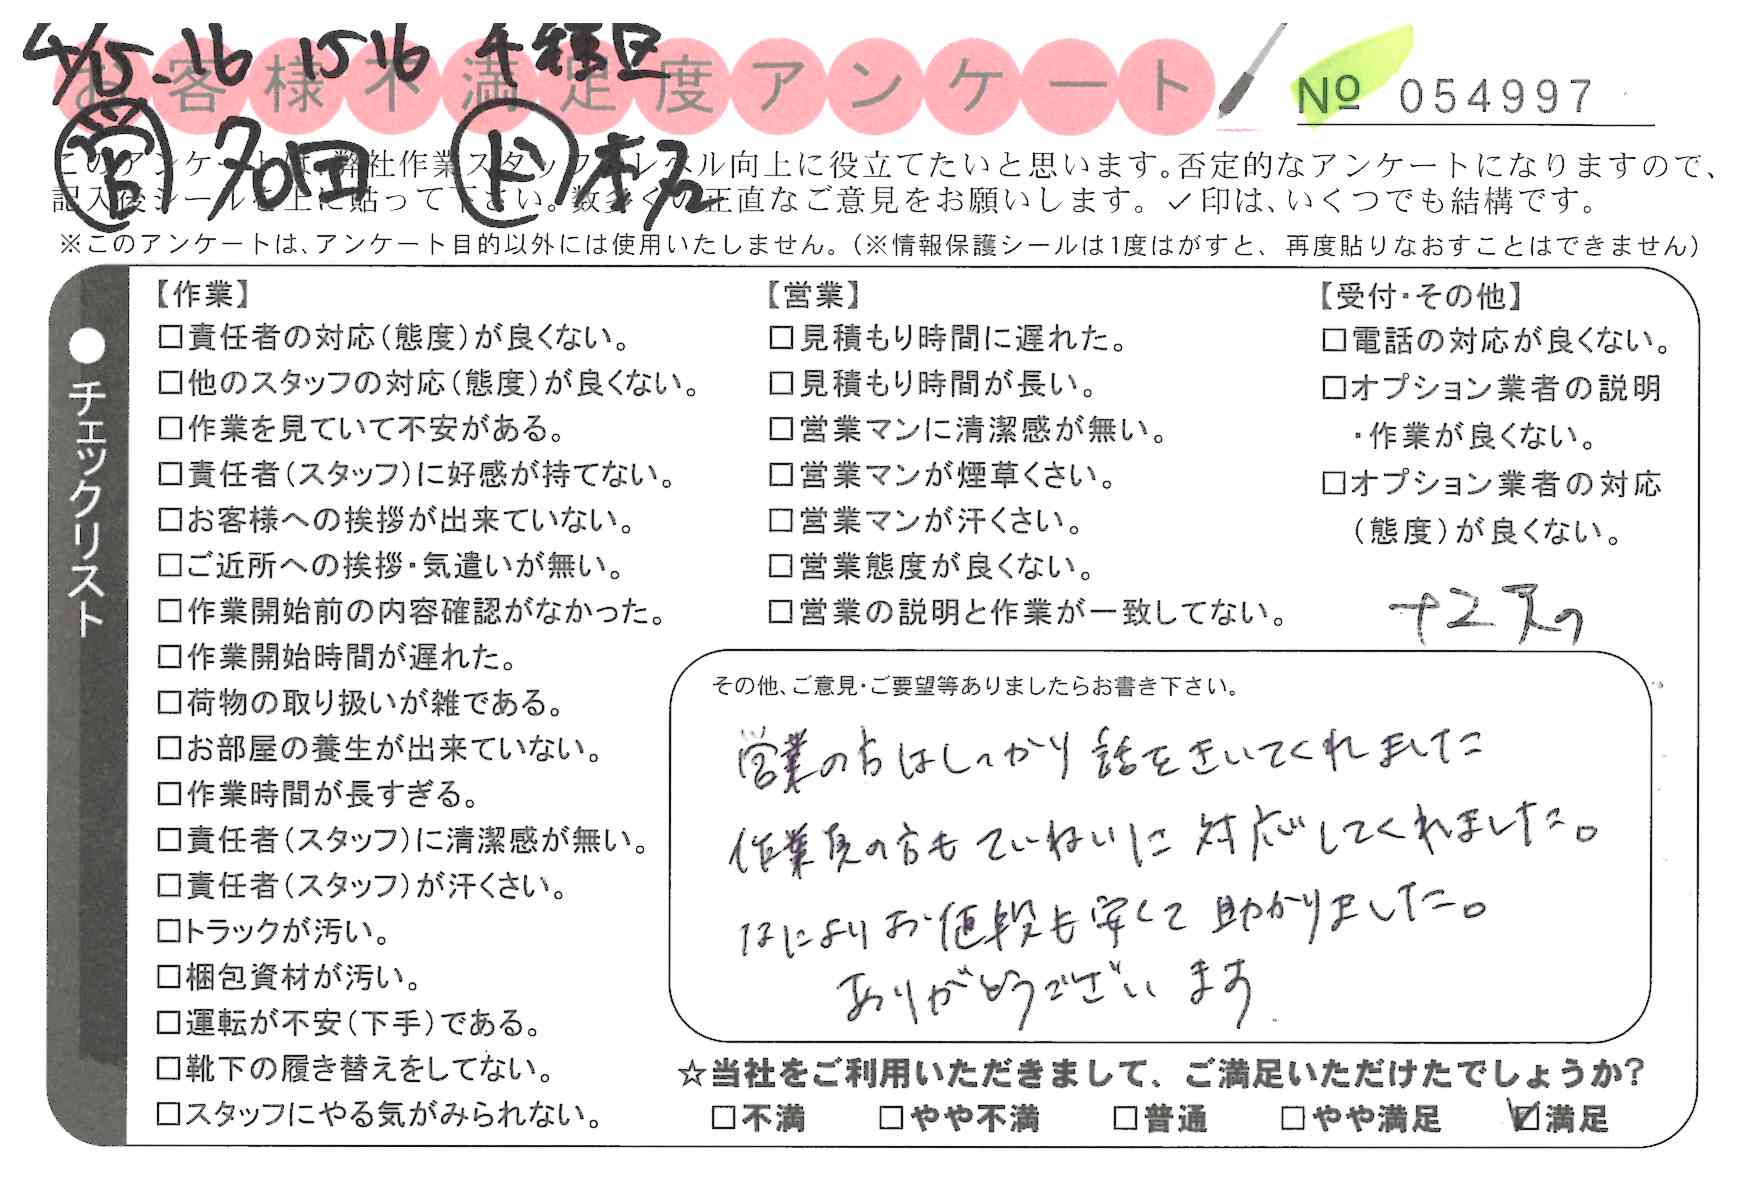 4/15.16 1516 千種区
お客様不満足度アンケート
№ 054997
営 多田 ド 本名
このアンケートは、弊社作業スタッフのレベル向上に役立てたいと思います。否定的なアンケートになりますので、
記入後シールを上に貼って下さい。数多くの正直なご意見をお願いします。✓印は、いくつでも結構です。
※このアンケートは、アンケート目的以外には使用いたしません。（※情報保護シールは1度はがすと、再度貼りなおすことはできません）
●チェックリスト
【作業】
□責任者の対応（態度）が良くない。
□他のスタッフの対応（態度）が良くない。
□作業を見ていて不安がある。
□責任者（スタッフ）に好感が持てない。
□お客様への挨拶が出来ていない。
□ご近所への挨拶・気遣いが無い。
□作業開始前の内容確認がなかった。
□作業開始時間が遅れた。
□荷物の取り扱いが雑である。
□お部屋の養生が出来ていない。
□作業時間が長すぎる。
□責任者（スタッフ）に清潔感が無い。
□責任者（スタッフ）が汗くさい。
□トラックが汚い。
□梱包資材が汚い。
□運転が不安（下手）である。
□靴下の履き替えをしてない。
□スタッフにやる気がみられない。
【営業】
□見積もり時間に遅れた。
□見積もり時間が長い。
□営業マンに清潔感が無い。
□営業マンが煙草くさい。
□営業マンが汗くさい。
□営業態度が良くない。
□営業の説明と作業が一致してない。
【受付・その他】
□電話の対応が良くない。
□オプション業者の説明
・作業が良くない。
□オプション業者の対応
（態度）が良くない。
その他、ご意見・ご要望等ありましたらお書き下さい。
営業の方はしっかり話をきいてくれました
作業員の方もていねいに対応してくれました。
なによりお値段も安くて助かりました。
ありがとうございます
☆当社をご利用いただきまして、ご満足いただけたでしょうか?
□不満 □やや不満 □普通 □やや満足 ☑満足